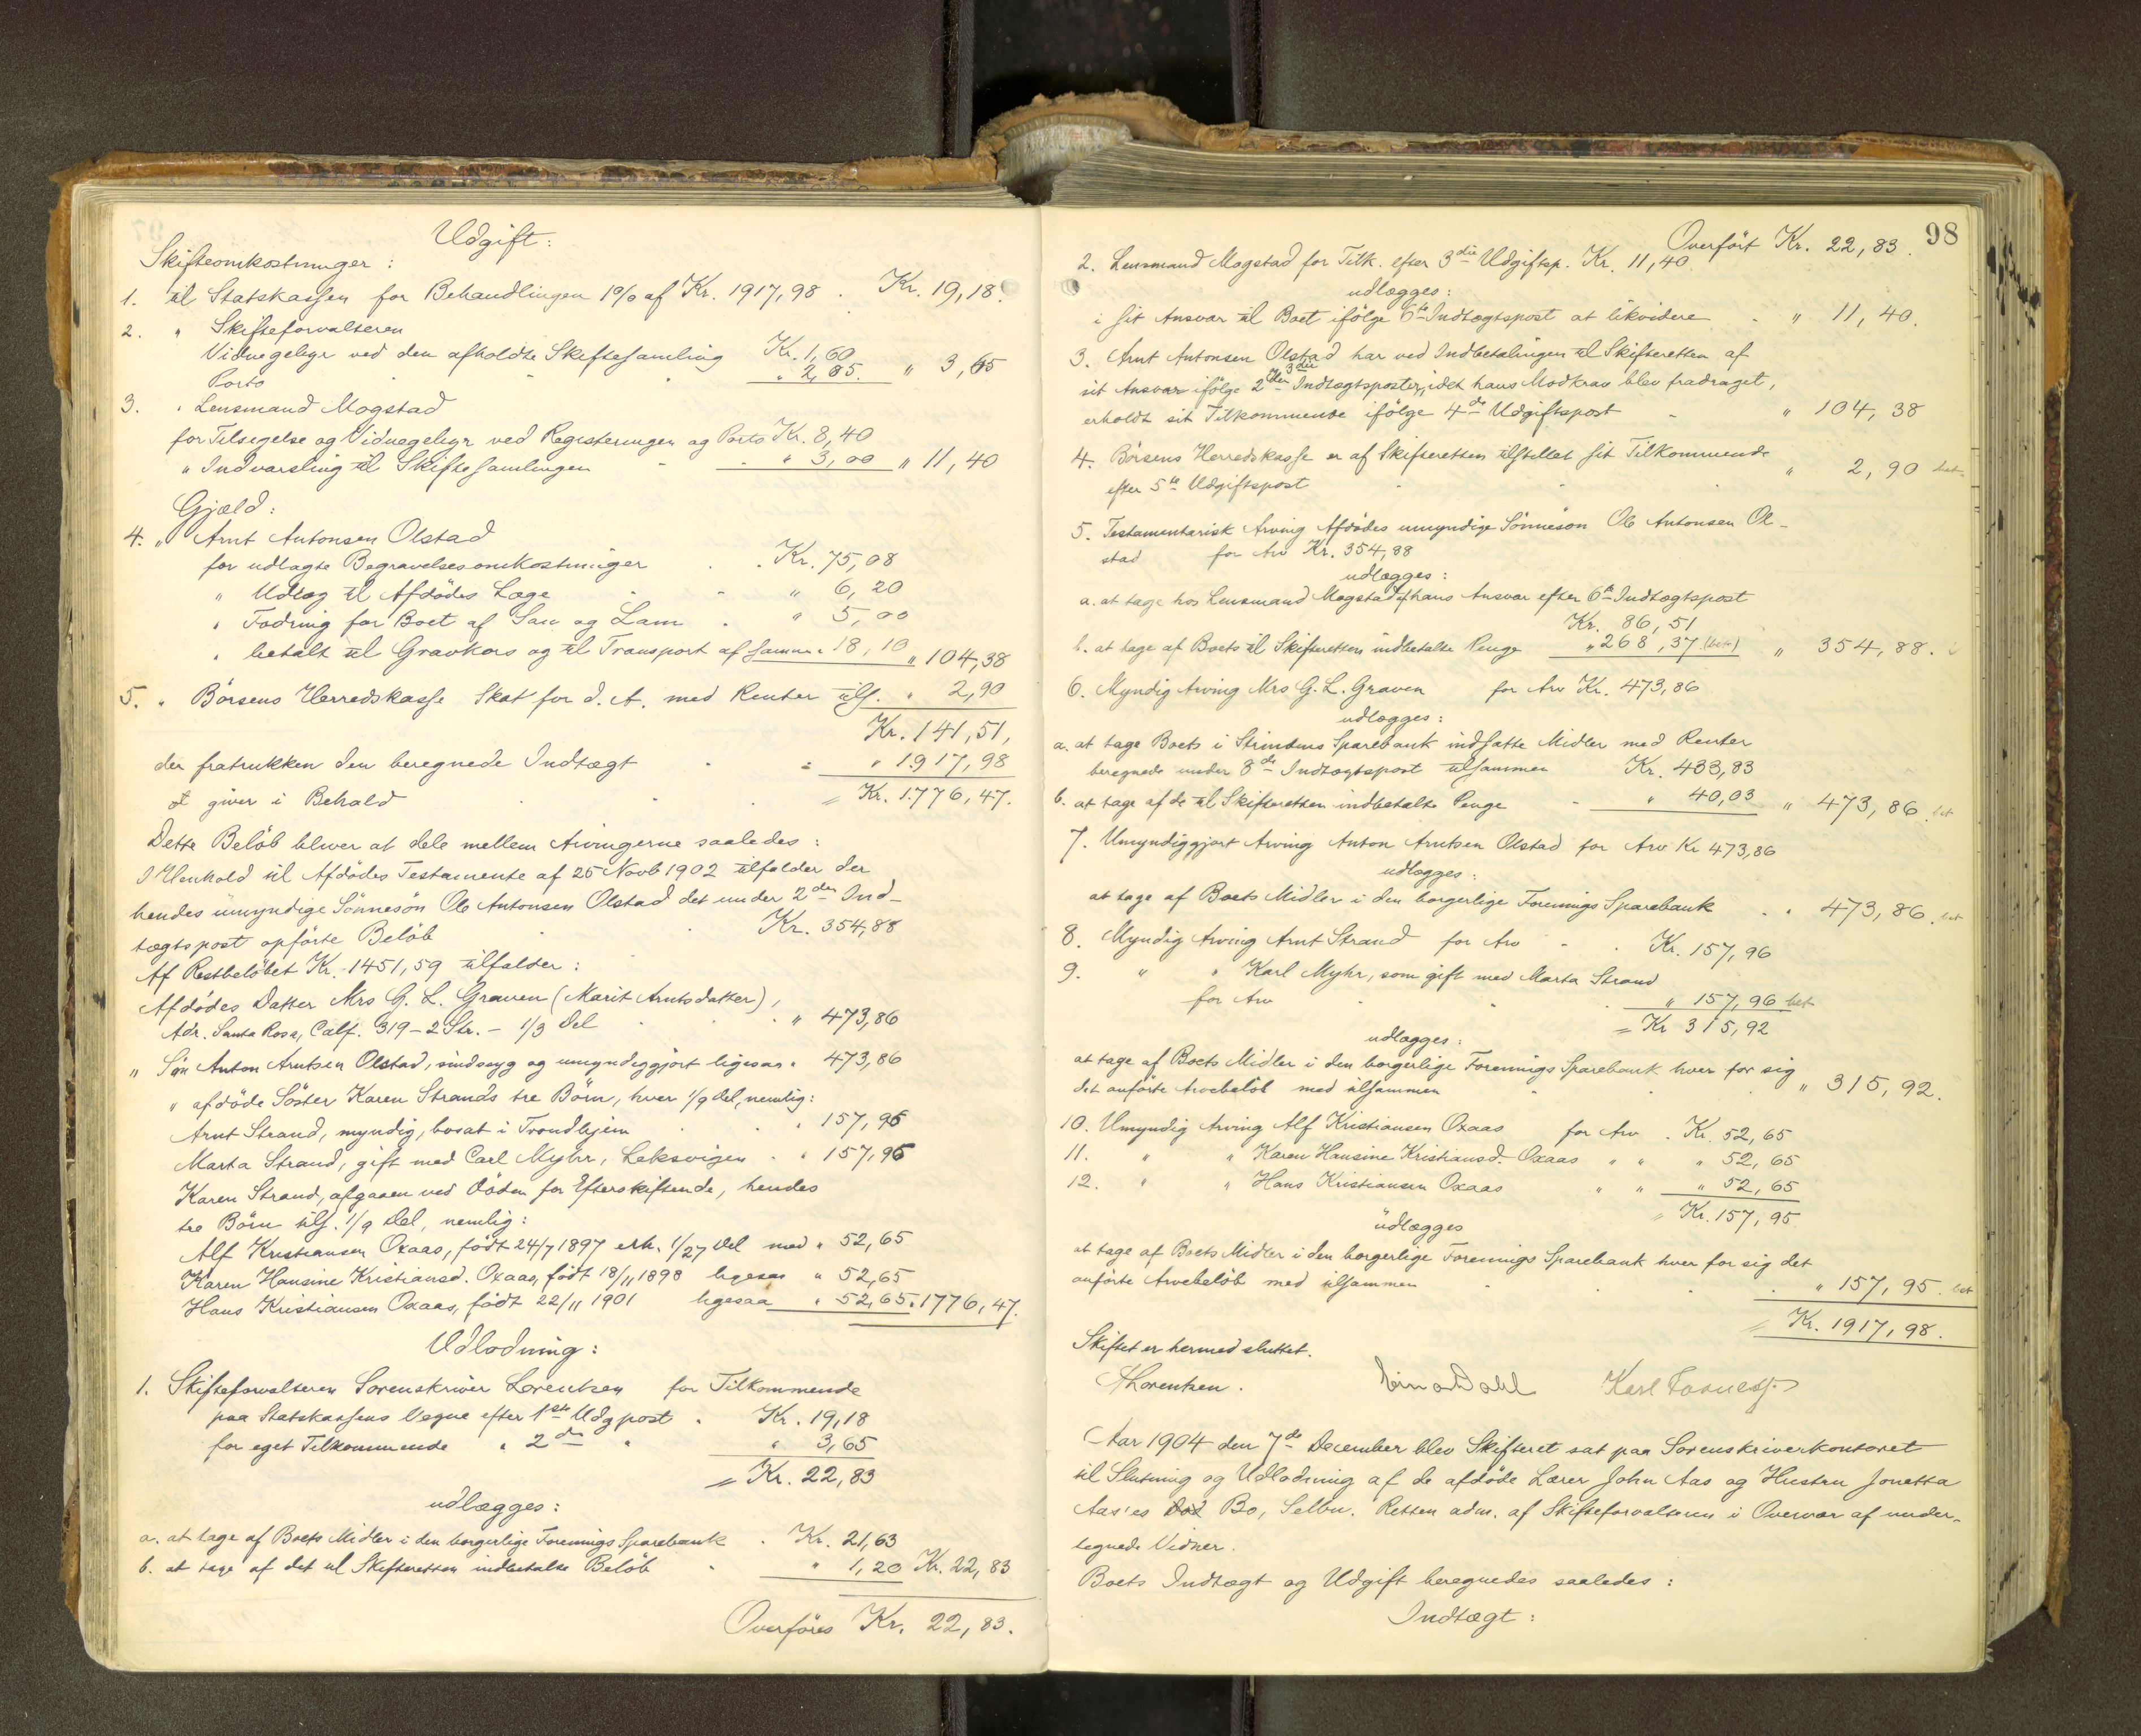 Udgift:
Skifteomkostninger:
1. til Statskassen for Behandlingen 1% af Kr. 1917,98 . Kr. 19,18.
2. " Skifteforvalteren
Vidnegebyr ved den afholdte Skiftesamling Kr. 1,60
Porto " " " 2,05. " 3,65
3. " Lensmand Mogstad
for Tilsigelse og Vidnegebyr ved Registeringen og Porto Kr. 8,40
" Indvarsling til Skiftesamlingen - - " 3,00 " 11,40
Gjæld:
4. " Arnt Antonsen Olstad
for udlagte Begravelsesomkostninger . . Kr. 75,08
" Udlæg til Afdødes Læge - - " 6,20
" Fodring for Boet af Sau og Lam . " 5,00
" betalt til Gravkors og til Transport af samme " 18,10 " 104,38
5. " Börsens Herredskasse Skat for d. A. med Renter tils. " 2,90
Kr. 141,51,
der fratrukken den beregnede Indtægt - = " 1917,98
giver i Behold . . . = Kr. 1776,47.
Dette Belöb bliver at dele mellem Arvingerne saaledes:
I Henhold til Afdødes Testamente af 25 Novb 1902 tilfalder der
hendes umyndige Sönnesön Ole Antonsen Olstad det under 2den Ind-
tægtspost opförte Belöb . . Kr. 354,88
Af Restbelöbet Kr. 1451,59 tilfalder:
Afdödes Datter Mrs G. L. Graven (Marit Arntsdatter),
Adr. Santa Rosa, Calf. 319 - 2 Str. - 1/3 Del . . " 473,86
" Sön Anton Arntsen Olstad, sindssyg og umyndiggjort ligesaa " 473,86
" afdöde Söster Karen Strands tre Börn, hver 1/9 Del, nemlig:
Arnt Strand, myndig, bosat i Trondhjem . . " 157,96
Marta Strand, gift med Carl Myhr, Leksvigen . " 157,96
Karen Strand, afgaaen ved Döden for Efterskiftende, hendes
tre Börn tils. 1/9 Del, nemlig:
Alf Kristiansen Oxaas, födt 24/7 1897 erh. 1/27 Del med " 52,65
Karen Hansine Kristiansd. Oxaas, födt 18/11 1898 ligesaa " 52,65
Hans Kristiansen Oxaas, födt 22/11 1901 ligesaa " 52,65 " 1776,47.
Udlodning:
1. Skifteforvalteren Sorenskriver Lorentzen for Tilkommende
paa Statskassens Vegne efter 1ste Udgpost . Kr. 19,18
for eget Tilkommende " 2den " " 3,65
= Kr. 22,83
udlægges:
a. at tage af Boets Midler i den borgerlige Forenings Sparebank . Kr. 21,63
b. at tage af det til Skifteretten indbetalte Belöb - " 1,20 Kr. 22,83
Overföres Kr. 22,83.
98
Overfört Kr. 22,83.
2. Lensmand Mogstad for Tilk. efter 3die Udgiftsp. Kr. 11,40
udlægges:
i sit Ansvar til Boet ifölge 6te Indtægtspost at likvidere - . " 11,40.
3. Arnt Antonsen Olstad har ved Indbetalingen til Skifteretten af
sit Ansvar ifölge 2den 3die Indtægtsposter, idet hans Modkrav blev fradraget,
erholdt sit Tilkommende ifölge 4de Udgiftspost - " 104,38
4. Börsens Herredskasse er af Skifteretten tilstillet sit Tilkommende
efter 5te Udgiftspost . . . " 2,90 bet.
5. Testamentarisk Arving Afdödes umyndige Sönnesön Ole Antonsen Ol-
stad for Arv Kr. 354,88
udlægges:
a. at tage hos Lensmand Mogstad af hans Ansvar efter 6te Indtægtspost
Kr. 86,51
b. at tage af Boets til Skifteretten indbetalte Penge " 268,37 (bet.) " 354,88.
6. Myndig Arving Mrs G. L. Graven for Arv Kr. 473,86
udlægges:
a. at tage Boets i Strindens Sparebank indsatte Midler med Renter
beregnede under 8de Indtægtspost tilsammen Kr. 433,83
b. at tage af de til Skifteretten indbetalte Penge - " 40,03 " 473,86. bet
7. Umyndiggjort Arving Anton Arntsen Olstad for Arv Kr 473,86
udlægges:
at tage af Boets Midler i den borgerlige Forenings Sparebank . " 473,86. bet
8. Myndig Arving Arnt Strand for Arv - . Kr. 157,96
9. " " Karl Myhr, som gift med Marta Strand
for Arv . . " 157,96 bet
= Kr 315,92
udlægges:
at tage af Boets Midler i den borgerlige Forenings Sparebank hver for sig
det anförte Arvebelöb med tilsammen . . . " 315,92.
10. Umyndig Arving Alf Kristiansen Oxaas for Arv . Kr. 52,65
11. " " Karen Hansine Kristiansd. Oxaas " " " 52,65
12. " " Hans Kristiansen Oxaas " " " 52,65
= Kr. 157,95
udlægges
at tage af Boets Midler i den borgerlige Forenings Sparebank hver for sig det
anförte Arvebelöb med tilsammen . . . " 157,95. bet
= Kr. 1917,98.
Skiftet er hermed sluttet.
Lorentzen. Dahl Karl
Aar 1904 den 7de December blev Skifteret sat paa Sorenskriverkontoret
til Slutning og Udlodning af de afdöde Lærer John Aas og Hustru Jonetta
Aas'es Död Bo, Selbu. Retten adm. af Skifteforvalteren i Overvær af under-
tegnede Vidner.
Boets Indtægt og Udgift beregnedes saaledes:
Indtægt: